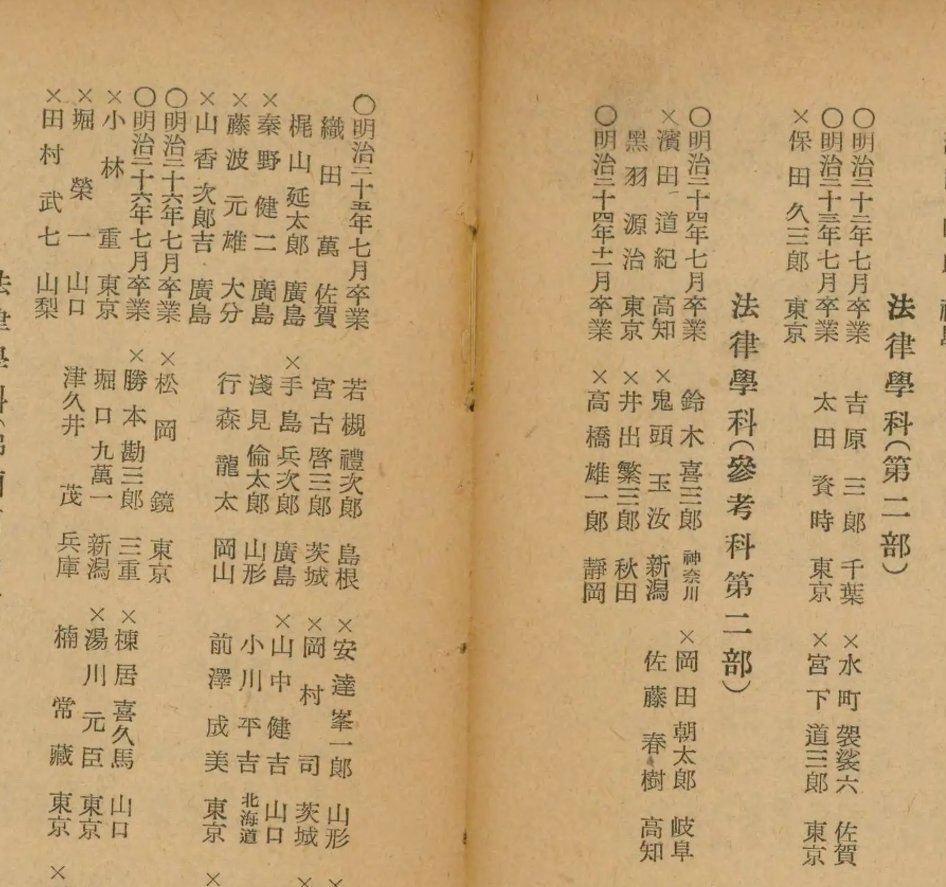 法律學科(第二部)
〇明治二十二年七月卒業 吉原三郎 千葉 ×水町袈裟六 佐賀
〇明治二十三年七月卒業 太田資時 東京 ×宮下道三郎 東京
×保田久三郎 東京
法律學科(參考科第二部)
〇明治二十四年七月卒業 鈴木喜三郎 神奈川 ×岡田朝太郎 岐阜
×濱田道紀 高知 ×鬼頭玉汝 新潟 佐藤春樹 高知
黑羽源治 東京 ×井出繁三郎 秋田
〇明治二十四年十一月卒業 ×高橋雄一郎 靜岡
〇明治二十五年七月卒業 若槻禮次郎 島根 ×安達峯一郎 山形
織田萬 佐賀 宮古啓三郎 茨城 ×岡村司 茨城
梶山延太郎 廣島 ×手島兵次郎 廣島 ×山中健吉 山口
×秦野健二 廣島 淺見倫太郎 山形 小川平吉 北海道
×藤波元雄 大分 行森龍太 岡山 前澤成美 東京
×山香次郎吉 廣島
〇明治二十六年七月卒業 ×松岡鏡 東京
〇明治二十六年七月卒業 ×勝本勘三郎 三重 ×棟居喜久馬 山口
×小林重 東京 堀口九萬一 新潟 ×湯川元臣 東京
×堀榮一 山口 津久井茂 兵庫 楠常藏 東京
×田村武七 山梨